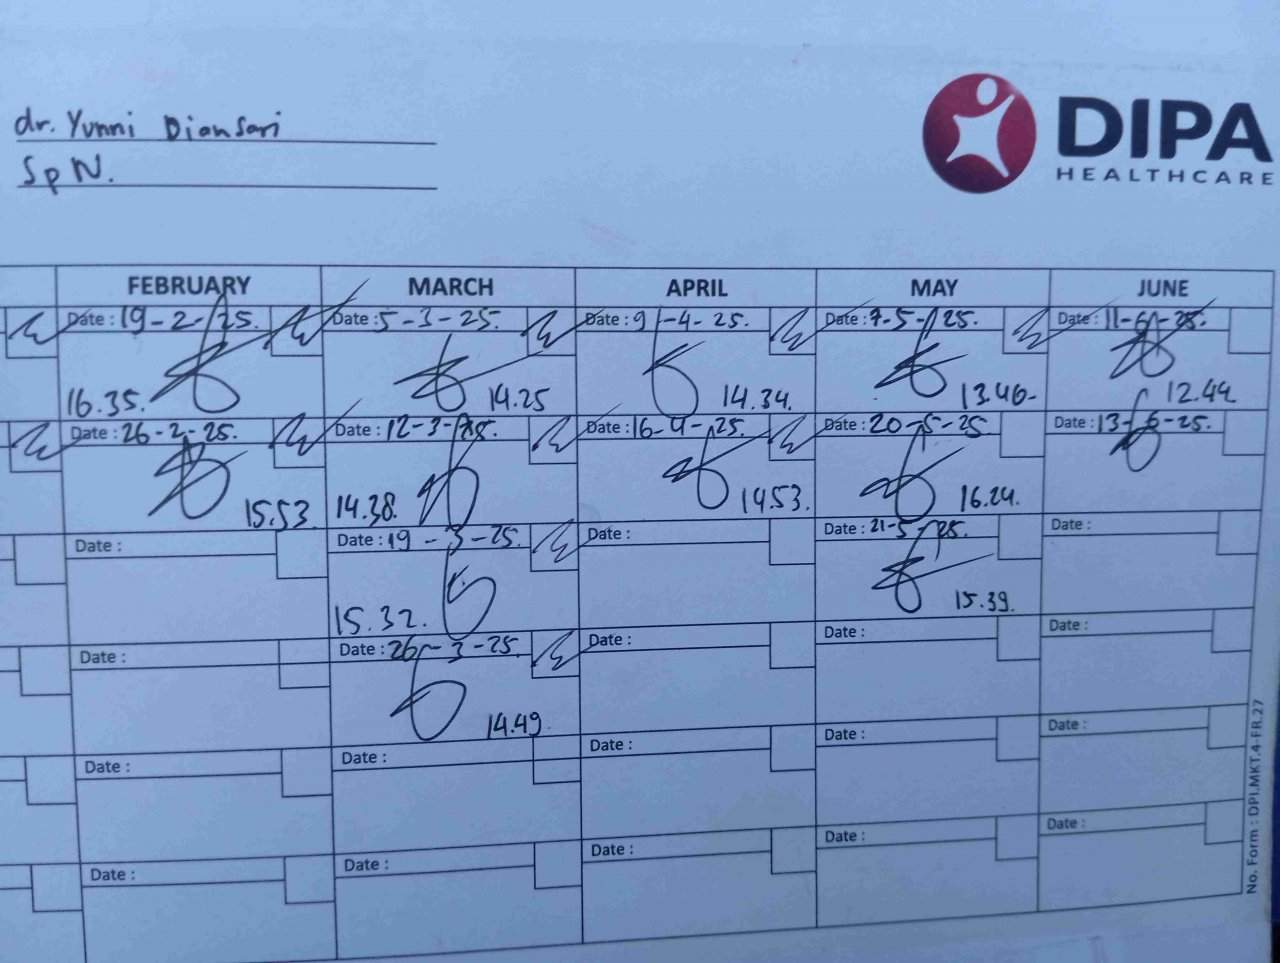 dr. Yunni Diansari
SpN.
DIPA
HEALTHCARE
FEBRUARY MARCH APRIL MAY JUNE
Date : 19-2-25. Date : 5-3-25. Date : 9-4-25. Date : 7-5-25. Date : 11-6-25.
16.35. 14.25 14.34. 13.46- 12.44
Date : 26-2-25. Date : 12-3-25. Date : 16-4-25. Date : 20-5-25 Date : 13-6-25.
15.53. 14.38. 14.53. 16.24.
Date : Date : 19-3-25. Date : Date : 21-5-25. Date :
15.32. 15.39.
Date : Date : 26-3-25. Date : Date : Date :
14.49
Date : Date : Date : Date : Date :
Date : Date : Date : Date : Date :
No. Form : DPI.MKT.4-FR.27